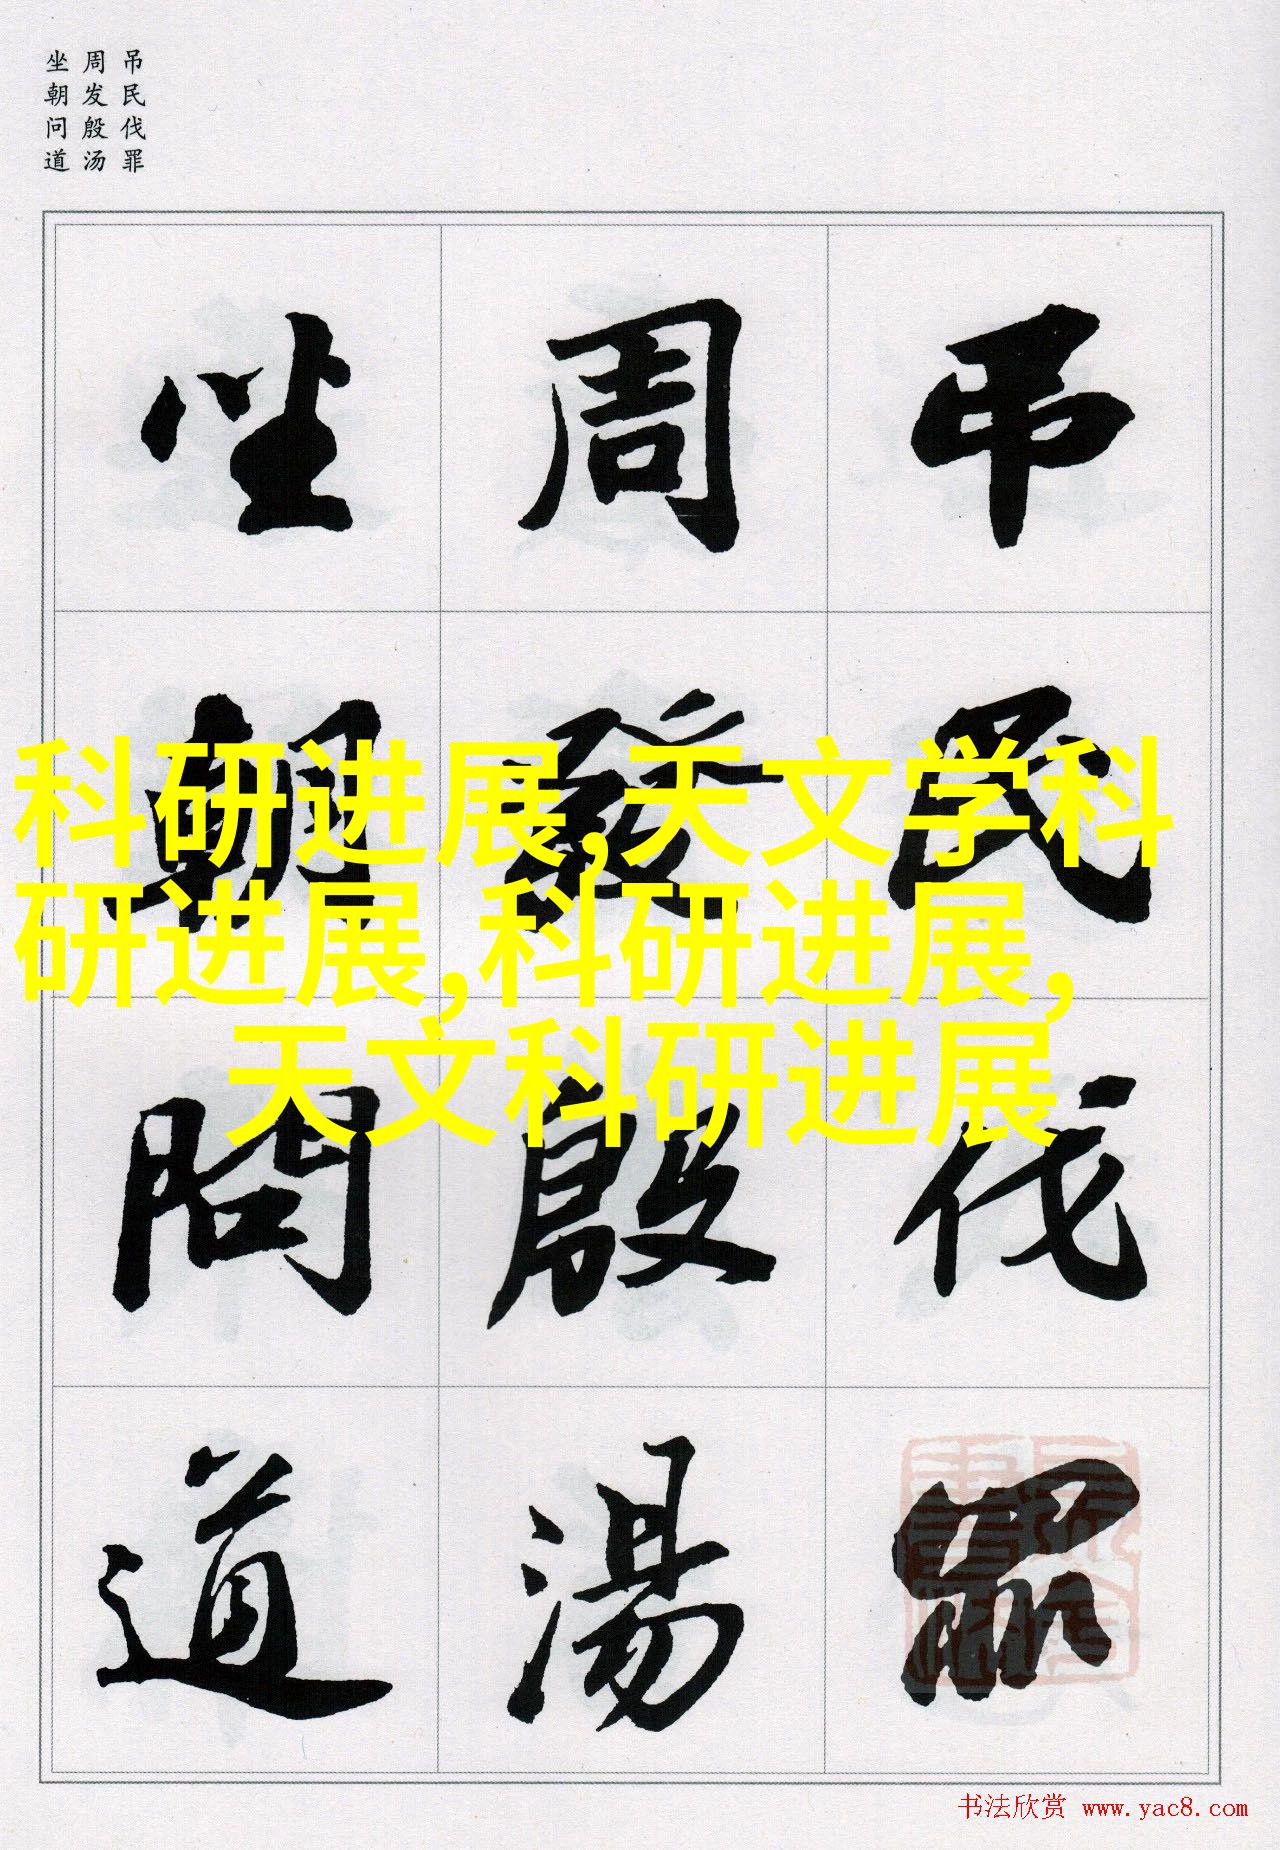 吊民伐罪
周发殷汤
坐朝问道
吊民伐罪
周發殷湯
坐朝問道
科研进展,天文学科
研进展,科研进展,
天文科研进展
书法欣赏 www.yac8.com